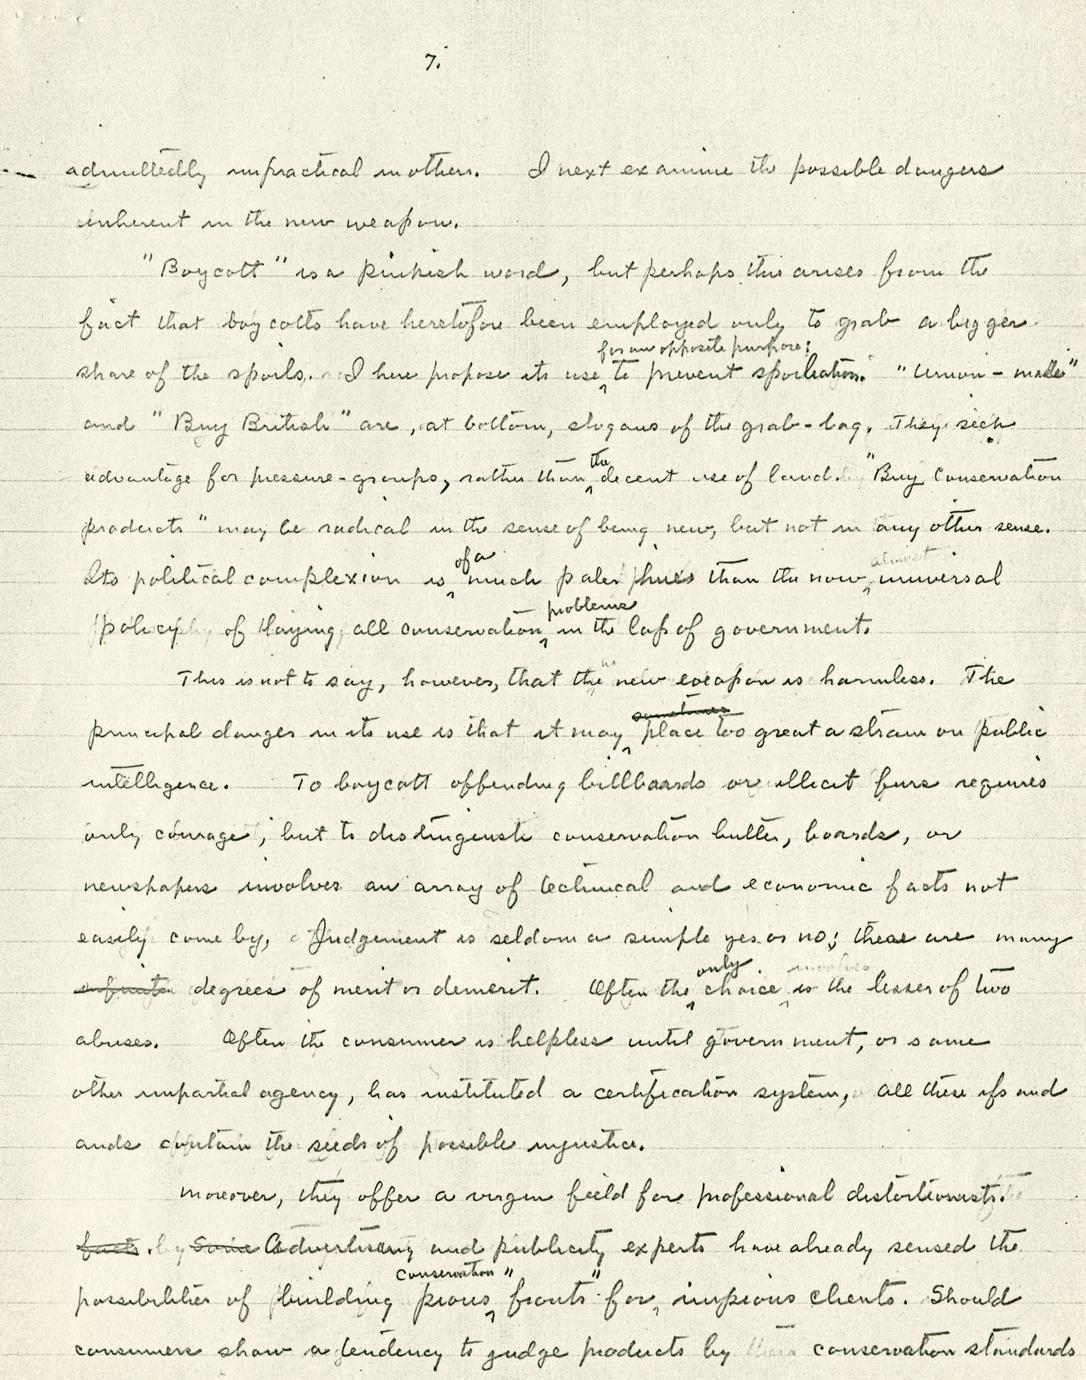 7.
admittedly impractical in others. I next examine the possible dangers
inherent in the new weapon.
"Boycott" is a pinkish word, but perhaps this arises from the
fact that boycotts have heretofore been employed only to grab a bigger
for an opposite purpose;
share of the spoils. I here propose its use to prevent spoliation. "Union-made"
and "Buy British" are, at bottom, slogans of the grab-bag. They seek
the
advantage for pressure-groups, rather than decent use of land. "Buy Conservation
products" may be radical in the sense of being new, but not in any other sense.
of a almost
Its political complexion is much paler hues than the now universal
problems
policy of laying all conservation in the lap of government.
This is not to say, however, that the new weapon is harmless. The
sometimes
principal danger in its use is that it may place too great a strain on public
intelligence. To boycott offending billboards or illicit furs requires
only courage; but to distinguish conservation butter, boards, or
newspapers involves an array of technical and economic facts not
easily come by. Judgement is seldom a simple yes or no; there are many
only involves
infinite degrees of merit or demerit. Often the choice is the lesser of two
abuses. Often the consumer is helpless until government, or some
other impartial agency, has instituted a certification system. All these ifs and
ands contain the seeds of possible injustice.
Moreover, they offer a virgin field for professional distortionists.
facts. by Some Advertising and publicity experts have already sensed the
conservation"
possibilities of building pious fronts" for impious clients. Should
consumers show a tendency to judge products by their conservation standards